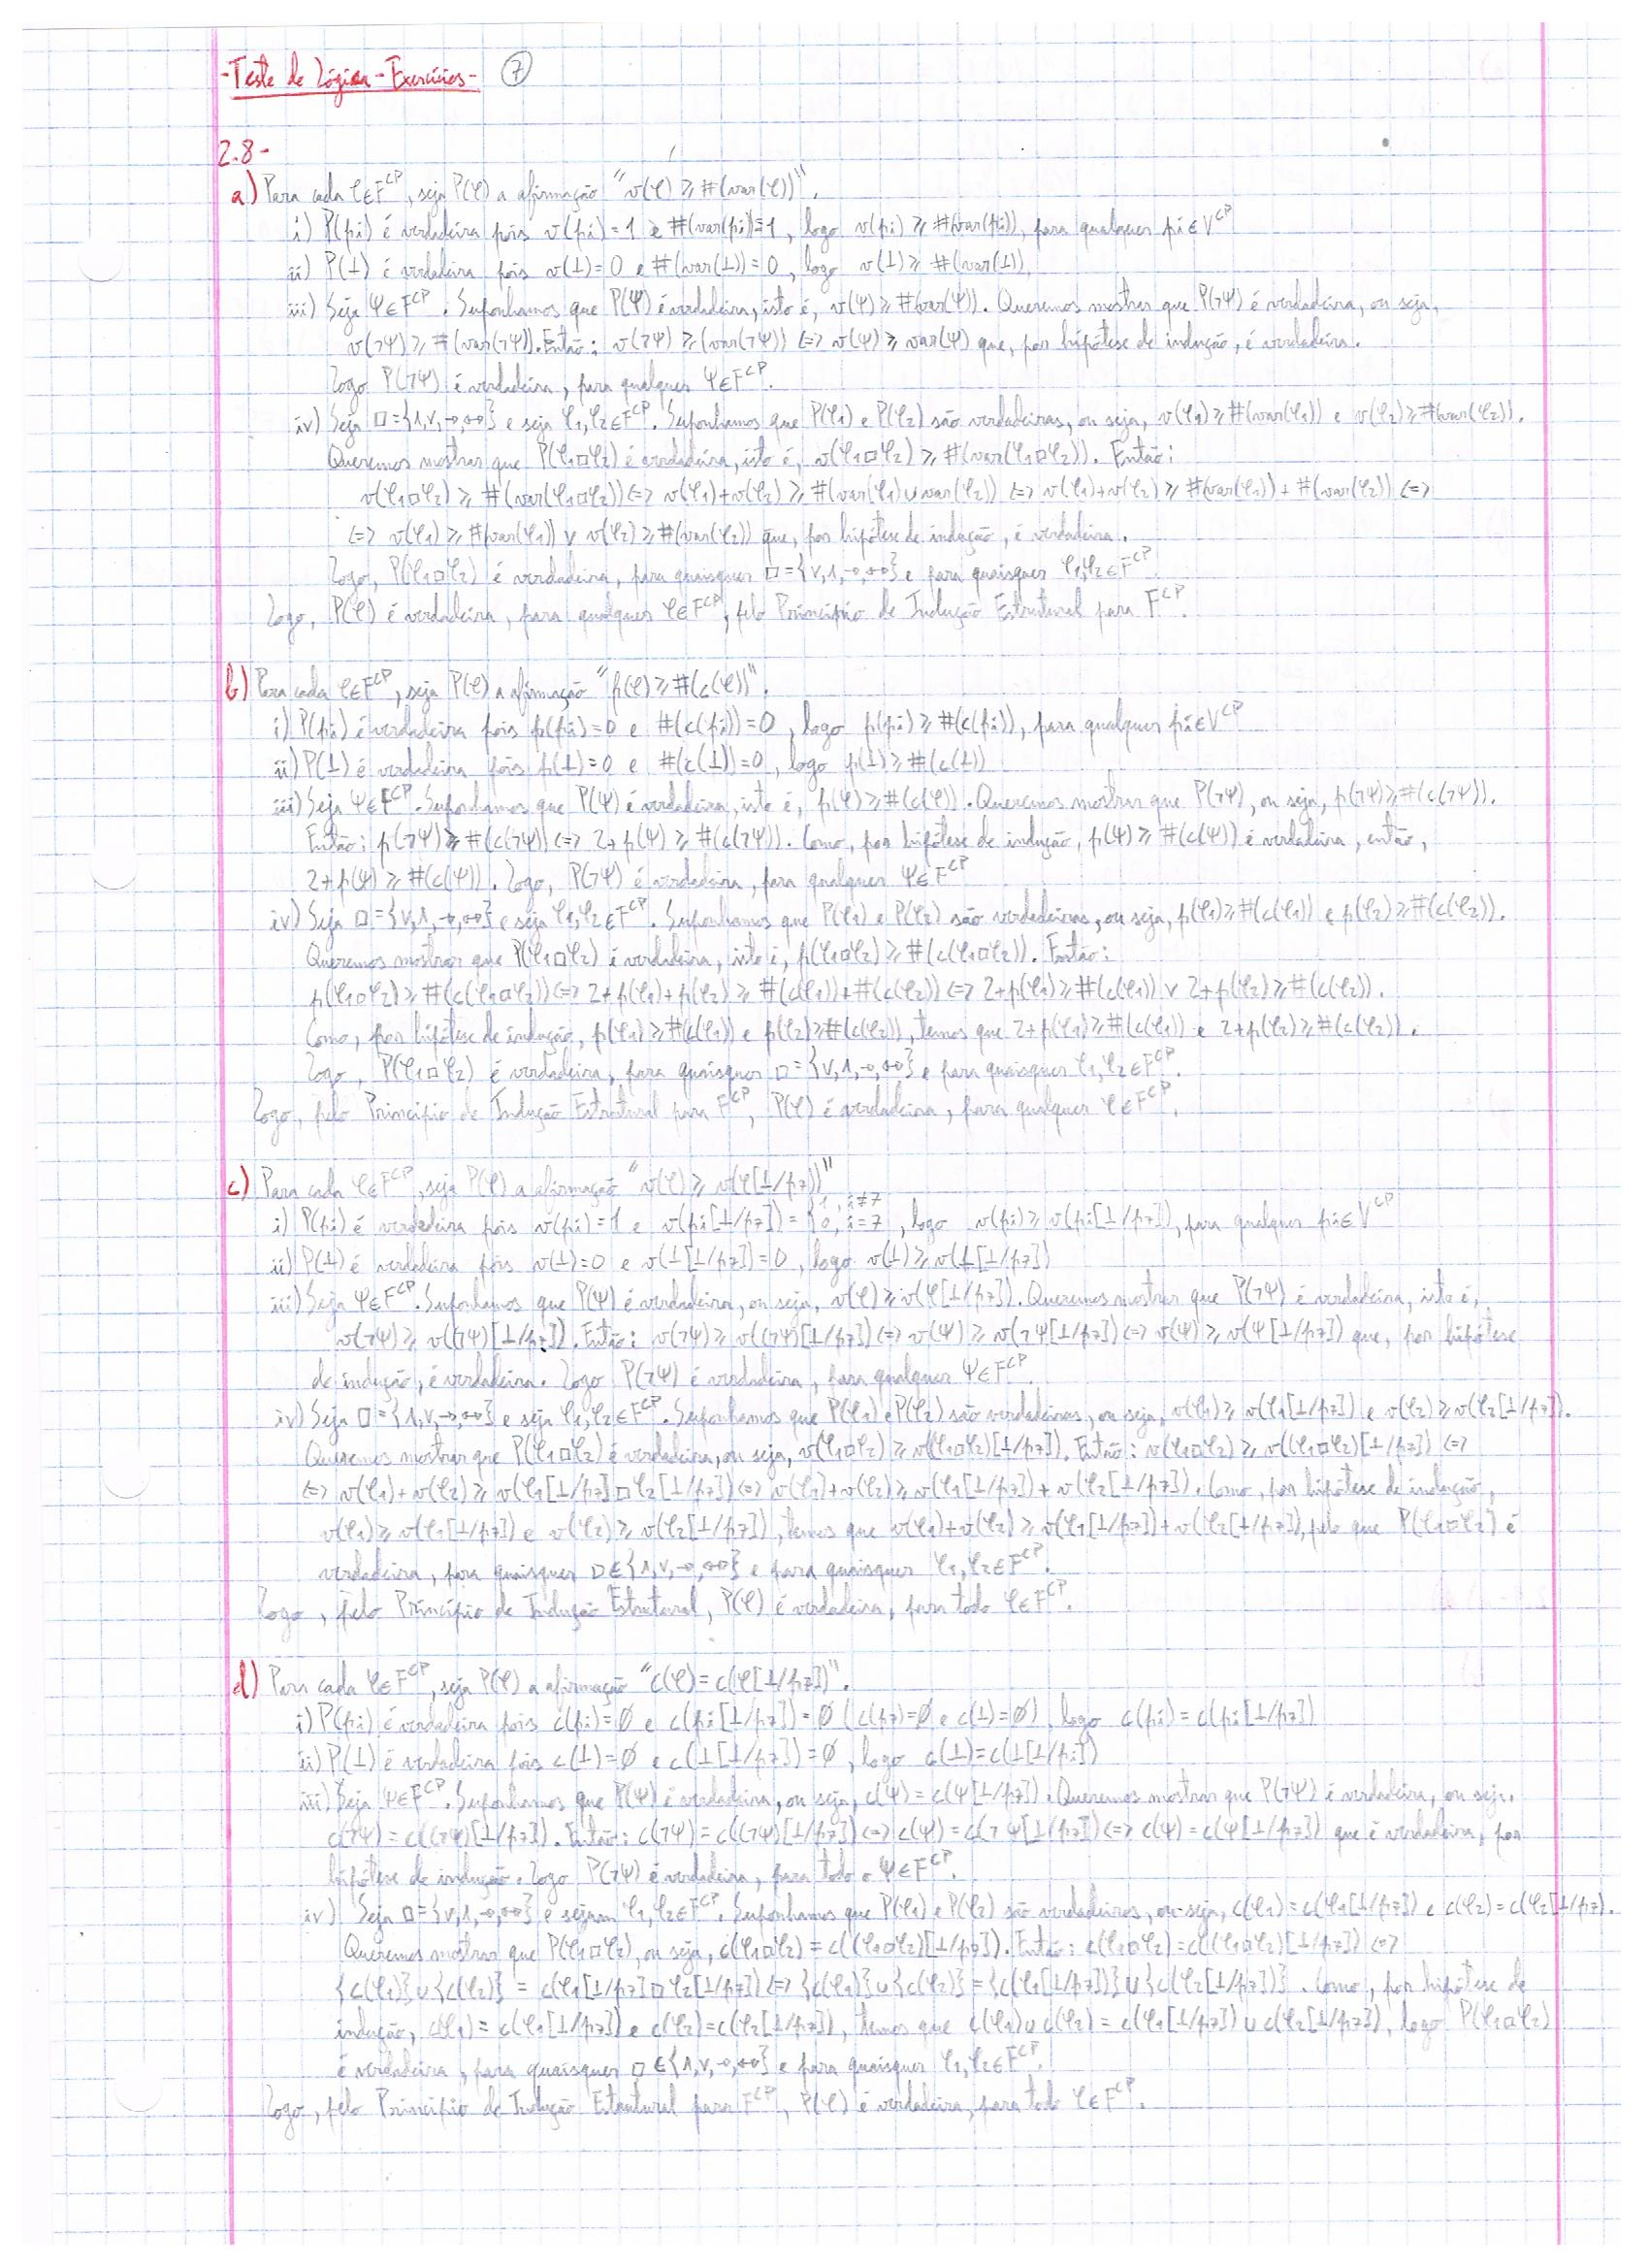 -Teste de Lógica - Exercícios- 7
2.8-
a) Para cada φ∈F^CP, seja P(φ) a afirmação "v(φ) ≥ #(var(φ))".
i) P(pi) é verdadeira pois v(pi)=1 e #(var(pi))=1, logo v(pi) ≥ #(var(pi)), para qualquer pi∈V^CP
ii) P(⊥) é verdadeira pois v(⊥)=0 e #(var(⊥))=0, logo v(⊥) ≥ #(var(⊥))
iii) Seja ψ∈F^CP. Suponhamos que P(ψ) é verdadeira, isto é, v(ψ) ≥ #(var(ψ)). Queremos mostrar que P(¬ψ) é verdadeira, ou seja,
v(¬ψ) ≥ #(var(¬ψ)). Então: v(¬ψ) ≥ (var(¬ψ)) <=> v(ψ) ≥ var(ψ) que, por hipótese de indução, é verdadeira.
Logo P(¬ψ) é verdadeira, para qualquer ψ∈F^CP.
iv) Seja □={∧,∨,→,↔} e seja φ1,φ2∈F^CP. Suponhamos que P(φ1) e P(φ2) são verdadeiras, ou seja, v(φ1) ≥ #(var(φ1)) e v(φ2) ≥ #(var(φ2)).
Queremos mostrar que P(φ1□φ2) é verdadeira, isto é, v(φ1□φ2) ≥ #(var(φ1□φ2)). Então:
v(φ1□φ2) ≥ #(var(φ1□φ2)) <=> v(φ1)+v(φ2) ≥ #(var(φ1)∪var(φ2)) <=> v(φ1)+v(φ2) ≥ #(var(φ1)) + #(var(φ2)) <=>
<=> v(φ1) ≥ #(var(φ1)) ∨ v(φ2) ≥ #(var(φ2)) que, por hipótese de indução, é verdadeira.
Logo, P(φ1□φ2) é verdadeira, para quaisquer □={∨,∧,→,↔} e para quaisquer φ1,φ2∈F^CP.
Logo, P(φ) é verdadeira, para qualquer φ∈F^CP, pelo Princípio de Indução Estrutural para F^CP.
b) Para cada φ∈F^CP, seja P(φ) a afirmação "p(φ) ≥ #(c(φ))".
i) P(pi) é verdadeira pois p(pi)=0 e #(c(pi))=0, logo p(pi) ≥ #(c(pi)), para qualquer pi∈V^CP
ii) P(⊥) é verdadeira pois p(⊥)=0 e #(c(⊥))=0, logo p(⊥) ≥ #(c(⊥))
iii) Seja ψ∈F^CP. Suponhamos que P(ψ) é verdadeira, isto é, p(ψ) ≥ #(c(ψ)). Queremos mostrar que P(¬ψ), ou seja, p(¬ψ) ≥ #(c(¬ψ)).
Então: p(¬ψ) ≥ #(c(¬ψ)) <=> 2+p(ψ) ≥ #(c(¬ψ)). Como, por hipótese de indução, p(ψ) ≥ #(c(ψ)) é verdadeira, então,
2+p(ψ) ≥ #(c(ψ)). Logo, P(¬ψ) é verdadeira, para qualquer ψ∈F^CP
iv) Seja □={∨,∧,→,↔} e seja φ1,φ2∈F^CP. Suponhamos que P(φ1) e P(φ2) são verdadeiras, ou seja, p(φ1) ≥ #(c(φ1)) e p(φ2) ≥ #(c(φ2)).
Queremos mostrar que P(φ1□φ2) é verdadeira, isto é, p(φ1□φ2) ≥ #(c(φ1□φ2)). Então:
p(φ1□φ2) ≥ #(c(φ1□φ2)) <=> 2+p(φ1)+p(φ2) ≥ #(c(φ1))+#(c(φ2)) <=> 2+p(φ1) ≥ #(c(φ1)) ∨ 2+p(φ2) ≥ #(c(φ2)).
Como, por hipótese de indução, p(φ1) ≥ #(c(φ1)) e p(φ2) ≥ #(c(φ2)), temos que 2+p(φ1) ≥ #(c(φ1)) e 2+p(φ2) ≥ #(c(φ2)).
Logo, P(φ1□φ2) é verdadeira, para quaisquer □={∨,∧,→,↔} e para quaisquer φ1,φ2∈F^CP.
Logo, pelo Princípio de Indução Estrutural para F^CP, P(φ) é verdadeira, para qualquer φ∈F^CP.
c) Para cada φ∈F^CP, seja P(φ) a afirmação "v(φ) ≥ v(φ[⊥/p7])"
i) P(pi) é verdadeira pois v(pi)=1 e v(pi[⊥/p7]) = {1, i≠7 0, i=7, logo v(pi) ≥ v(pi[⊥/p7]), para qualquer pi∈V^CP
ii) P(⊥) é verdadeira pois v(⊥)=0 e v(⊥[⊥/p7])=0, logo v(⊥) ≥ v(⊥[⊥/p7])
iii) Seja ψ∈F^CP. Suponhamos que P(ψ) é verdadeira, ou seja, v(ψ) ≥ v(ψ[⊥/p7]). Queremos mostrar que P(¬ψ) é verdadeira, isto é,
v(¬ψ) ≥ v((¬ψ)[⊥/p7]). Então: v(¬ψ) ≥ v((¬ψ)[⊥/p7]) <=> v(ψ) ≥ v(¬ψ[⊥/p7]) <=> v(ψ) ≥ v(ψ[⊥/p7]) que, por hipótese
de indução, é verdadeira. Logo P(¬ψ) é verdadeira, para qualquer ψ∈F^CP.
iv) Seja □={∧,∨,→,↔} e seja φ1,φ2∈F^CP. Suponhamos que P(φ1) e P(φ2) são verdadeiras, ou seja, v(φ1) ≥ v(φ1[⊥/p7]) e v(φ2) ≥ v(φ2[⊥/p7]).
Queremos mostrar que P(φ1□φ2) é verdadeira, ou seja, v(φ1□φ2) ≥ v((φ1□φ2)[⊥/p7]). Então: v(φ1□φ2) ≥ v((φ1□φ2)[⊥/p7]) <=>
<=> v(φ1)+v(φ2) ≥ v(φ1[⊥/p7]□φ2[⊥/p7]) <=> v(φ1)+v(φ2) ≥ v(φ1[⊥/p7]) + v(φ2[⊥/p7]). Como, por hipótese de indução,
v(φ1) ≥ v(φ1[⊥/p7]) e v(φ2) ≥ v(φ2[⊥/p7]), temos que v(φ1)+v(φ2) ≥ v(φ1[⊥/p7])+v(φ2[⊥/p7]), pelo que P(φ1□φ2) é
verdadeira, para quaisquer □∈{∧,∨,→,↔} e para quaisquer φ1,φ2∈F^CP.
Logo, pelo Princípio de Indução Estrutural, P(φ) é verdadeira, para todo φ∈F^CP.
d) Para cada φ∈F^CP, seja P(φ) a afirmação "c(φ)=c(φ[⊥/p7])".
i) P(pi) é verdadeira pois c(pi)=∅ e c(pi[⊥/p7])=∅ (c(p7)=∅ e c(⊥)=∅), logo c(pi)=c(pi[⊥/p7])
ii) P(⊥) é verdadeira pois c(⊥)=∅ e c(⊥[⊥/p7])=∅, logo c(⊥)=c(⊥[⊥/pi])
iii) Seja ψ∈F^CP. Suponhamos que P(ψ) é verdadeira, ou seja, c(ψ)=c(ψ[⊥/p7]). Queremos mostrar que P(¬ψ) é verdadeira, ou seja.
c(¬ψ)=c((¬ψ)[⊥/p7]). Então: c(¬ψ)=c((¬ψ)[⊥/p7]) <=> c(ψ)=c(¬ψ[⊥/p7]) <=> c(ψ)=c(ψ[⊥/p7]) que é verdadeira, por
hipótese de indução. Logo P(¬ψ) é verdadeira, para todo o ψ∈F^CP.
iv) Seja □={∨,∧,→,↔} e sejam φ1,φ2∈F^CP. Suponhamos que P(φ1) e P(φ2) são verdadeiras, ou seja, c(φ1)=c(φ1[⊥/p7]) e c(φ2)=c(φ2[⊥/p7).
Queremos mostrar que P(φ1□φ2), ou seja, c(φ1□φ2)=c((φ1□φ2)[⊥/p7]). Então: c(φ1□φ2)=c((φ1□φ2)[⊥/p7]) <=>
{c(φ1)}∪{c(φ2)} = c(φ1[⊥/p7]□φ2[⊥/p7]) <=> {c(φ1)}∪{c(φ2)} = {c(φ1[⊥/p7])}∪{c(φ2[⊥/p7])}. Como, por hipótese de
indução, c(φ1)=c(φ1[⊥/p7]) e c(φ2)=c(φ2[⊥/p7]), temos que c(φ1)∪c(φ2)=c(φ1[⊥/p7])∪c(φ2[⊥/p7]), logo P(φ1□φ2)
é verdadeira, para quaisquer □∈{∧,∨,→,↔} e para quaisquer φ1,φ2∈F^CP.
Logo, pelo Princípio de Indução Estrutural para F^CP, P(φ) é verdadeira, para todo φ∈F^CP.